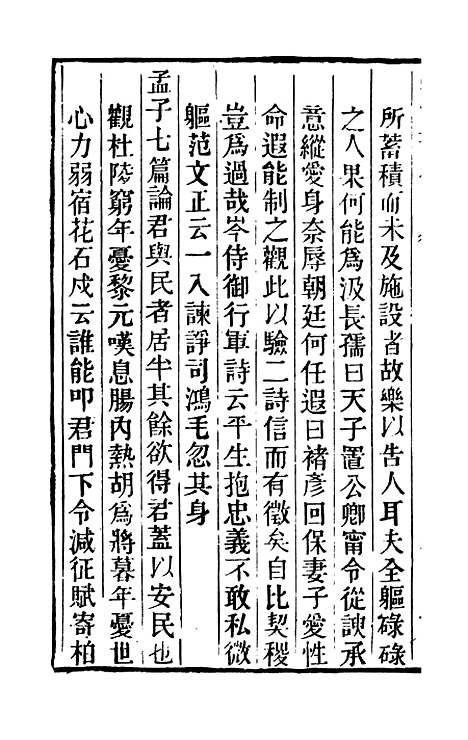 所蓄積而未及施設者故樂以告人耳夫全軀碌碌
之人果何能爲汲長孺曰天子置公卿甯令從諛承
意縱愛身奈辱朝廷何任遐曰褚彥回保妻子愛性
命遐能制之觀此以驗二詩信而有徵矣自比契稷
豈爲過哉岑侍御行軍詩云平生抱忠義不敢私微
軀范文正云一入諫諍司鴻毛忽其身
孟子七篇論君與民者居半其餘欲得君蓋以安民也
觀杜陵窮年憂黎元嘆息腸內熱胡爲將暮年憂世
心力弱宿花石戍云誰能叩君門下令減征賦寄柏